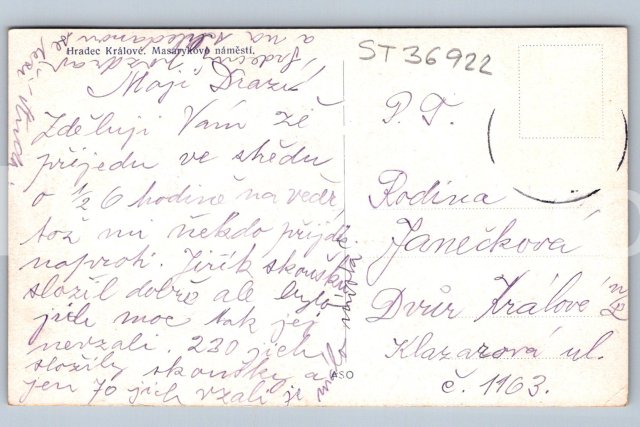 Hradec Králové. Masarykovo náměstí.
ST 36922
Moji Drazí
Zděluji Vám že
přijedu ve středu
o 1/2 6 hodině na več
tož mi někdo přijďte
naproti. Jiřík skoušku
složil dobře ale bylo
jich moc tak jej
nevzali. 230 jich
složily skoušky a
jen 70 jich vzali je
Srdečný pozdrav
a na shledanou se
těší
P. T.
Rodina
Janečkova
Dvůr Králové n/L
Klazarová ul.
č. 1163.
ASO